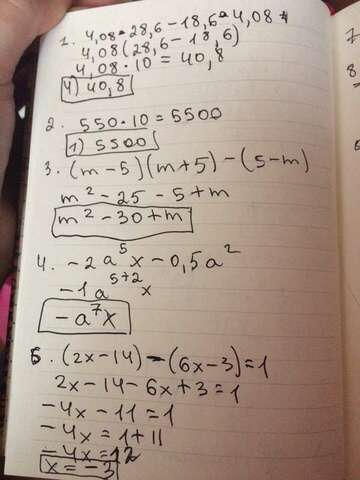 1. 4,08 · 28,6 - 18,6 · 4,08 =
4,08 (28,6 - 18,6)
4,08 · 10 = 40,8
4) 40,8
2. 550 · 10 = 5500
1) 5500
3. (m - 5)(m + 5) - (5 - m)
m² - 25 - 5 + m
m² - 30 + m
4. -2a⁵x - 0,5a²
-1a⁵⁺²x
-a⁷x
5. (2x - 14) - (6x - 3) = 1
2x - 14 - 6x + 3 = 1
-4x - 11 = 1
-4x = 1 + 11
-4x = 12
x = -3